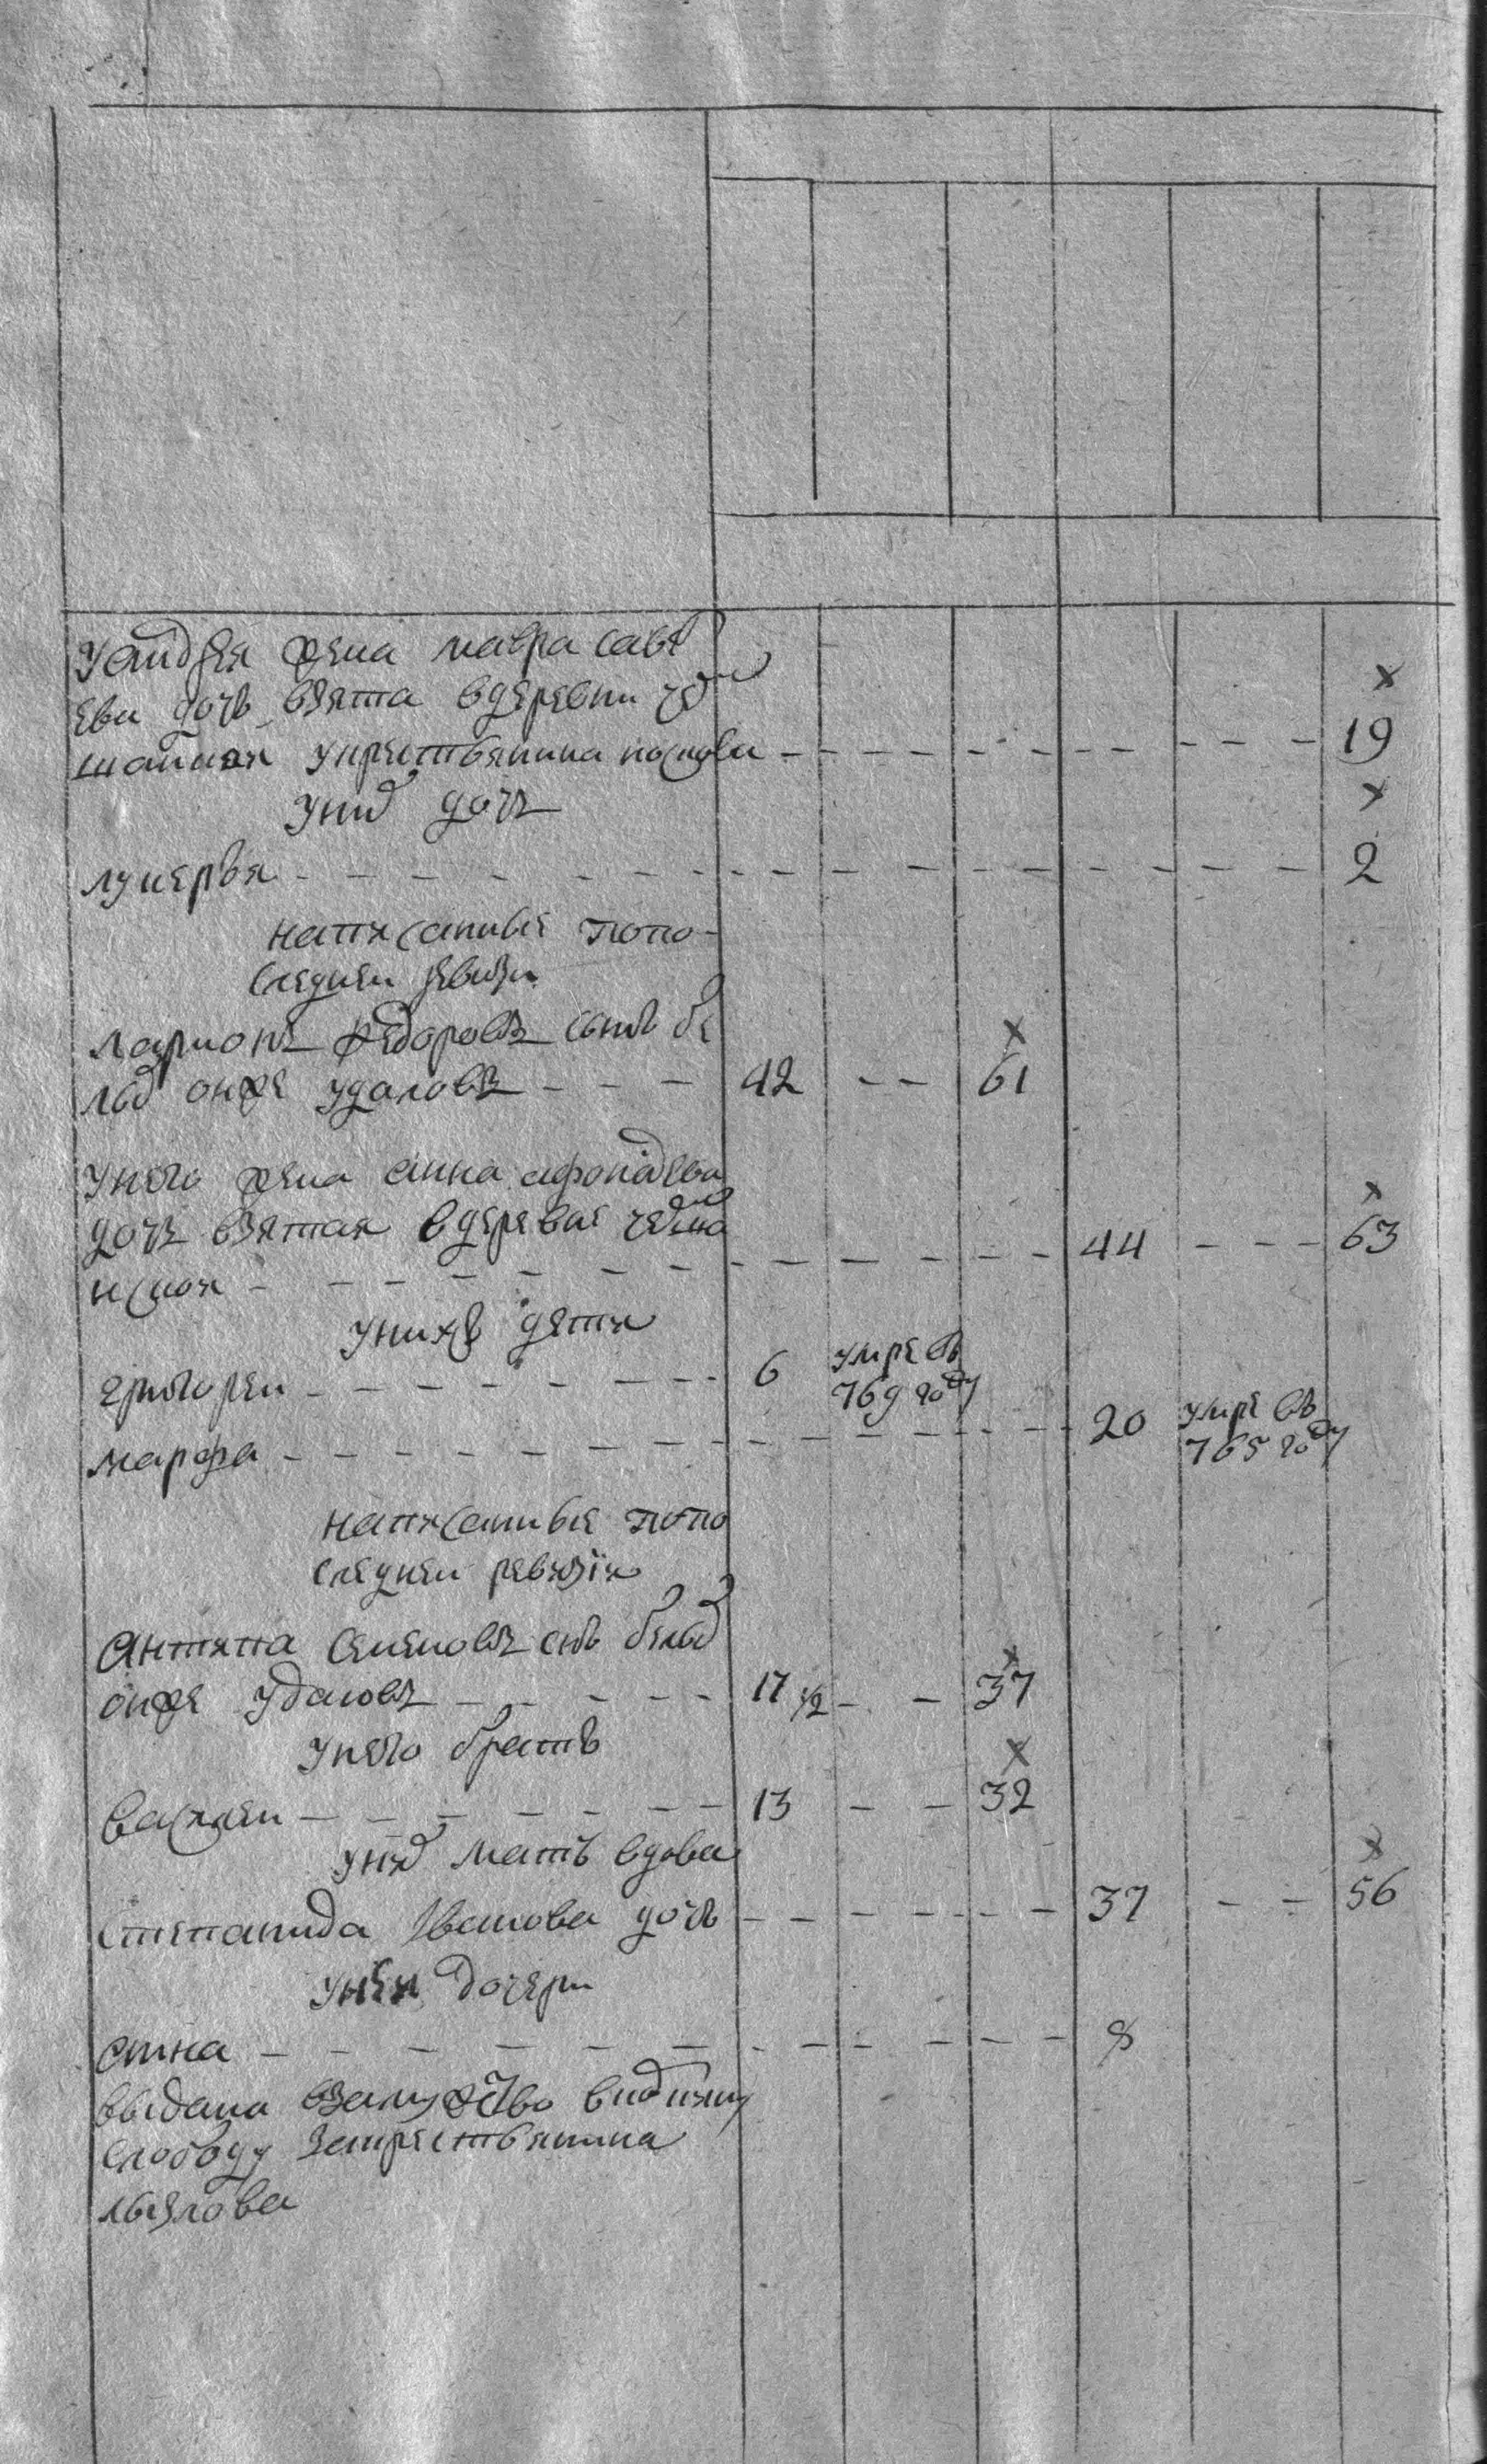 У андрея жена мавра савел
ева дочь взята в деревни
у крестьянина
У них дочь
лукерья - - - 2
× 19
×
написанныя по по-
следней ревизи
ларионъ федоровъ сынъ бе
лыхъ онже удаловъ - - - 42 - - × 61
У него жена анна афонасева
дочь взятая в деревне
- - - 44 - - - × 63
У нихъ дети
григореи - - - 6 умре въ 769 году
марфа - - - 20 умре въ 765 году
написанныя по по
следней ревизiи
Антипа семеновъ снъ белых
онже удаловъ - - - 17 ½ - - × 37
У него братъ
василеи - - - 13 - - × 32
У них мать вдова
степанида Iванова дочь - - - 37 - - × 56
У неи дочери
анна - - - 8
выдана взамужство в
слободу за крестьянина
лызлова